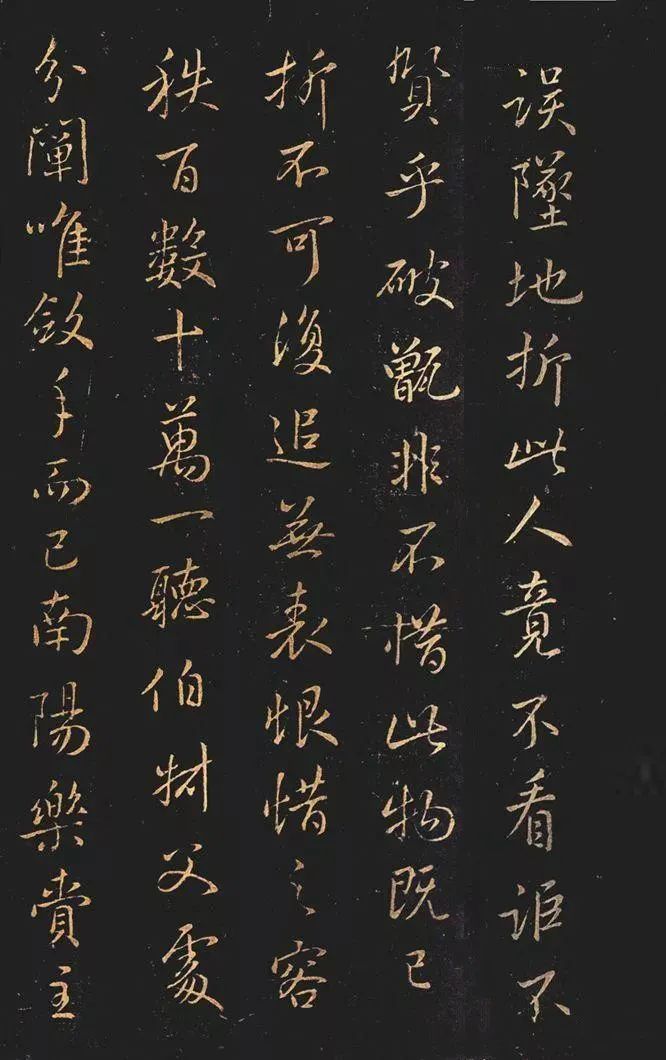 誤墜地折此人竟不看詎不
賢乎破甑非不惜此物既已
折不可復追無表恨惜之容
秩百數十萬一聽伯父處
分闡唯斂手而已南陽樂賞主